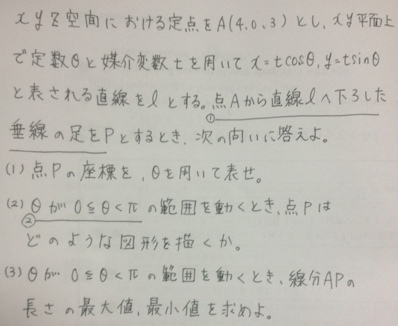 xyz空間における定点をA(4,0,3)とし、xy平面上
で定数θと媒介変数tを用いてx=tcosθ,y=tsinθ
と表される直線をlとする。点Aから直線lへ下ろした
①
垂線の足をPとするとき、次の問いに答えよ。
(1)点Pの座標を,θを用いて表せ。
(2)θが0≦θ<πの範囲を動くとき、点Pは
②
どのような図形を描くか。
(3)θが0≦θ<πの範囲を動くとき、線分APの
長さの最大値,最小値を求めよ。